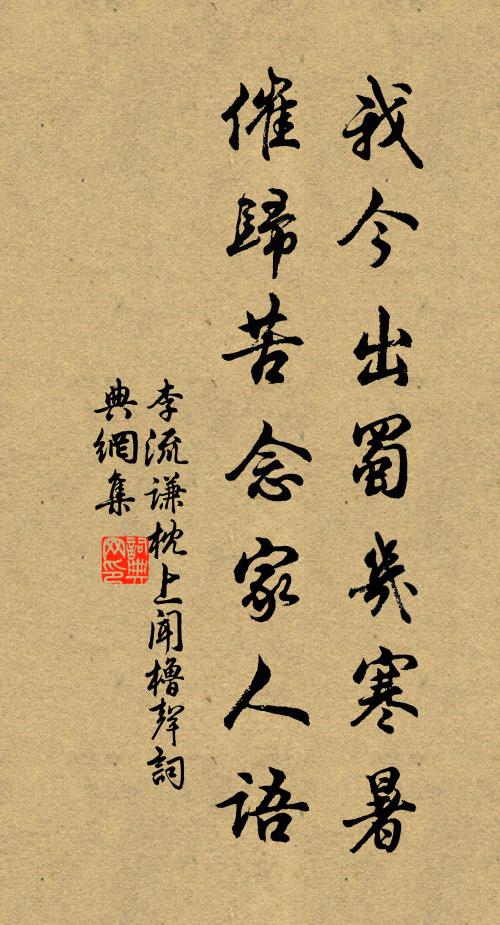 我今出蜀幾寒暑
催歸苦念家人語
李流謙枕上聞櫓聲詞
典網集
詞典網印